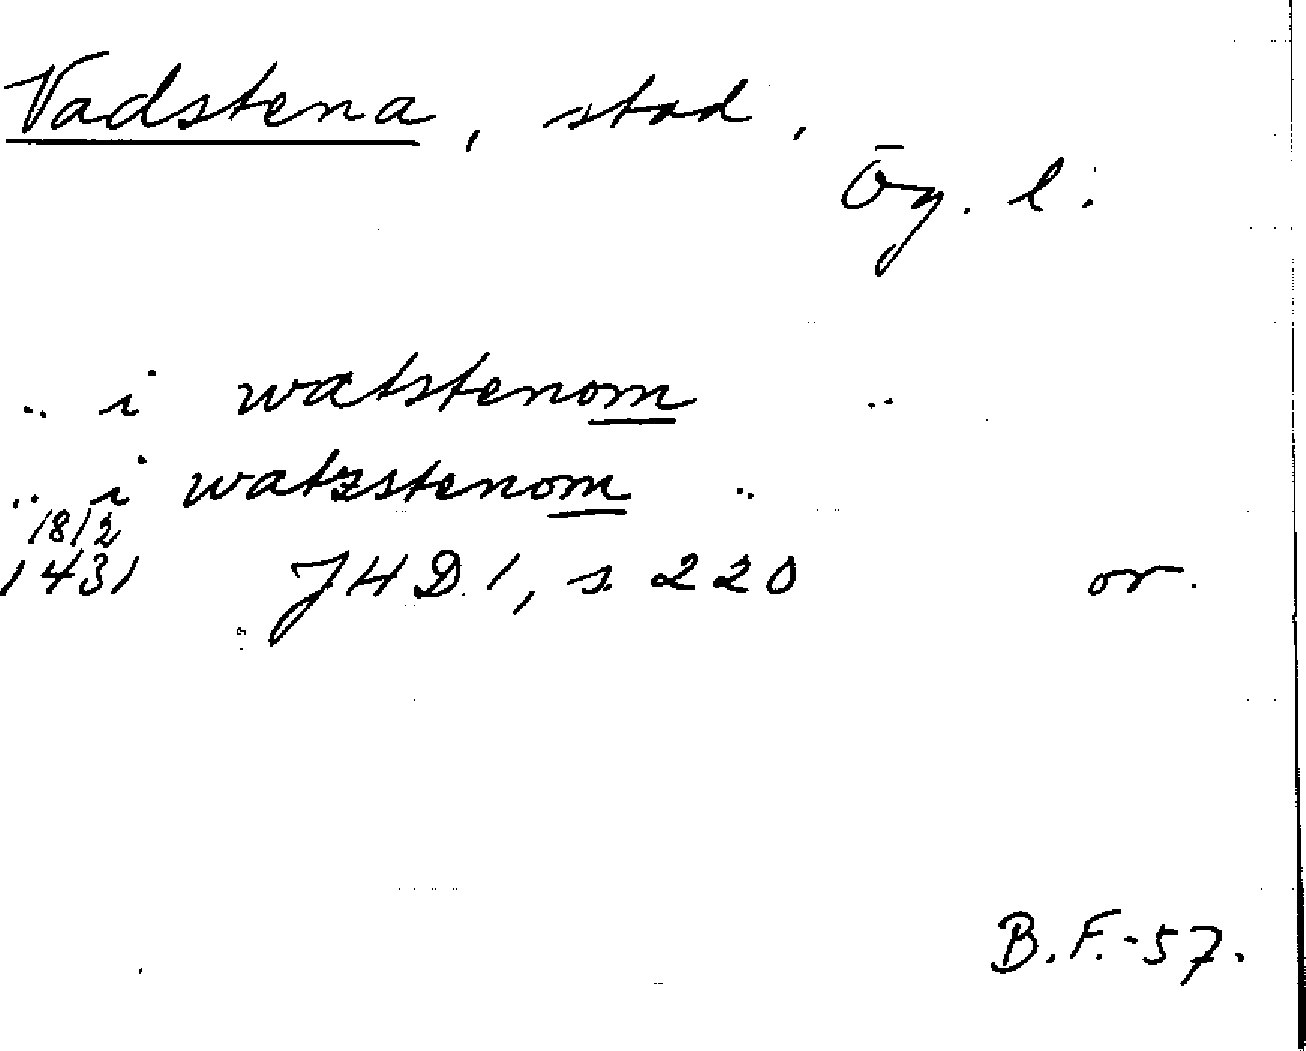 Vadstena, stad,
Ög. l.
.. i watstenom ..
.. i watzstenom ..
18/2
1431 JHD 1, s. 220 or.
B.F.-57.